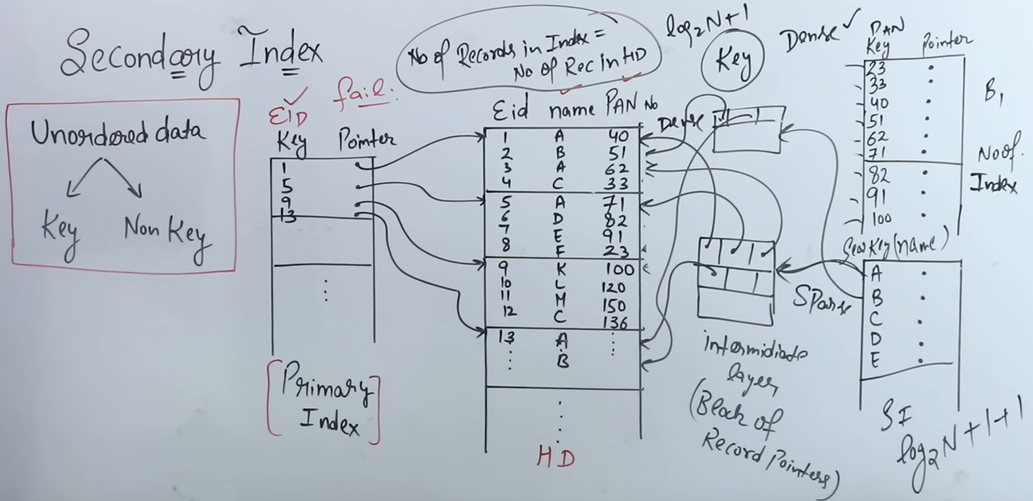 Secondary Index
Unordered data
Key
Non Key
EID
fail:
Key
Pointer
1
5
9
13
Primary
Index
No of Records in Index =
No of Rec in HD
Eid name PAN No
1 A 40
2 B 51
3 A 62
4 C 33
5 A 71
6 D 82
7 E 91
8 F 23
9 K 100
10 L 120
11 M 150
12 C 136
13 A
B
HD
log2N+1
Key
Dense
Dense
Sparse
intermidiate
layer
(Block of
Record Pointers)
PAN
Key
Pointer
23
33
40
51
62
71
82
91
100
B1
No of.
Index
Key(name)
A
B
C
D
E
SI
log2N+1+1